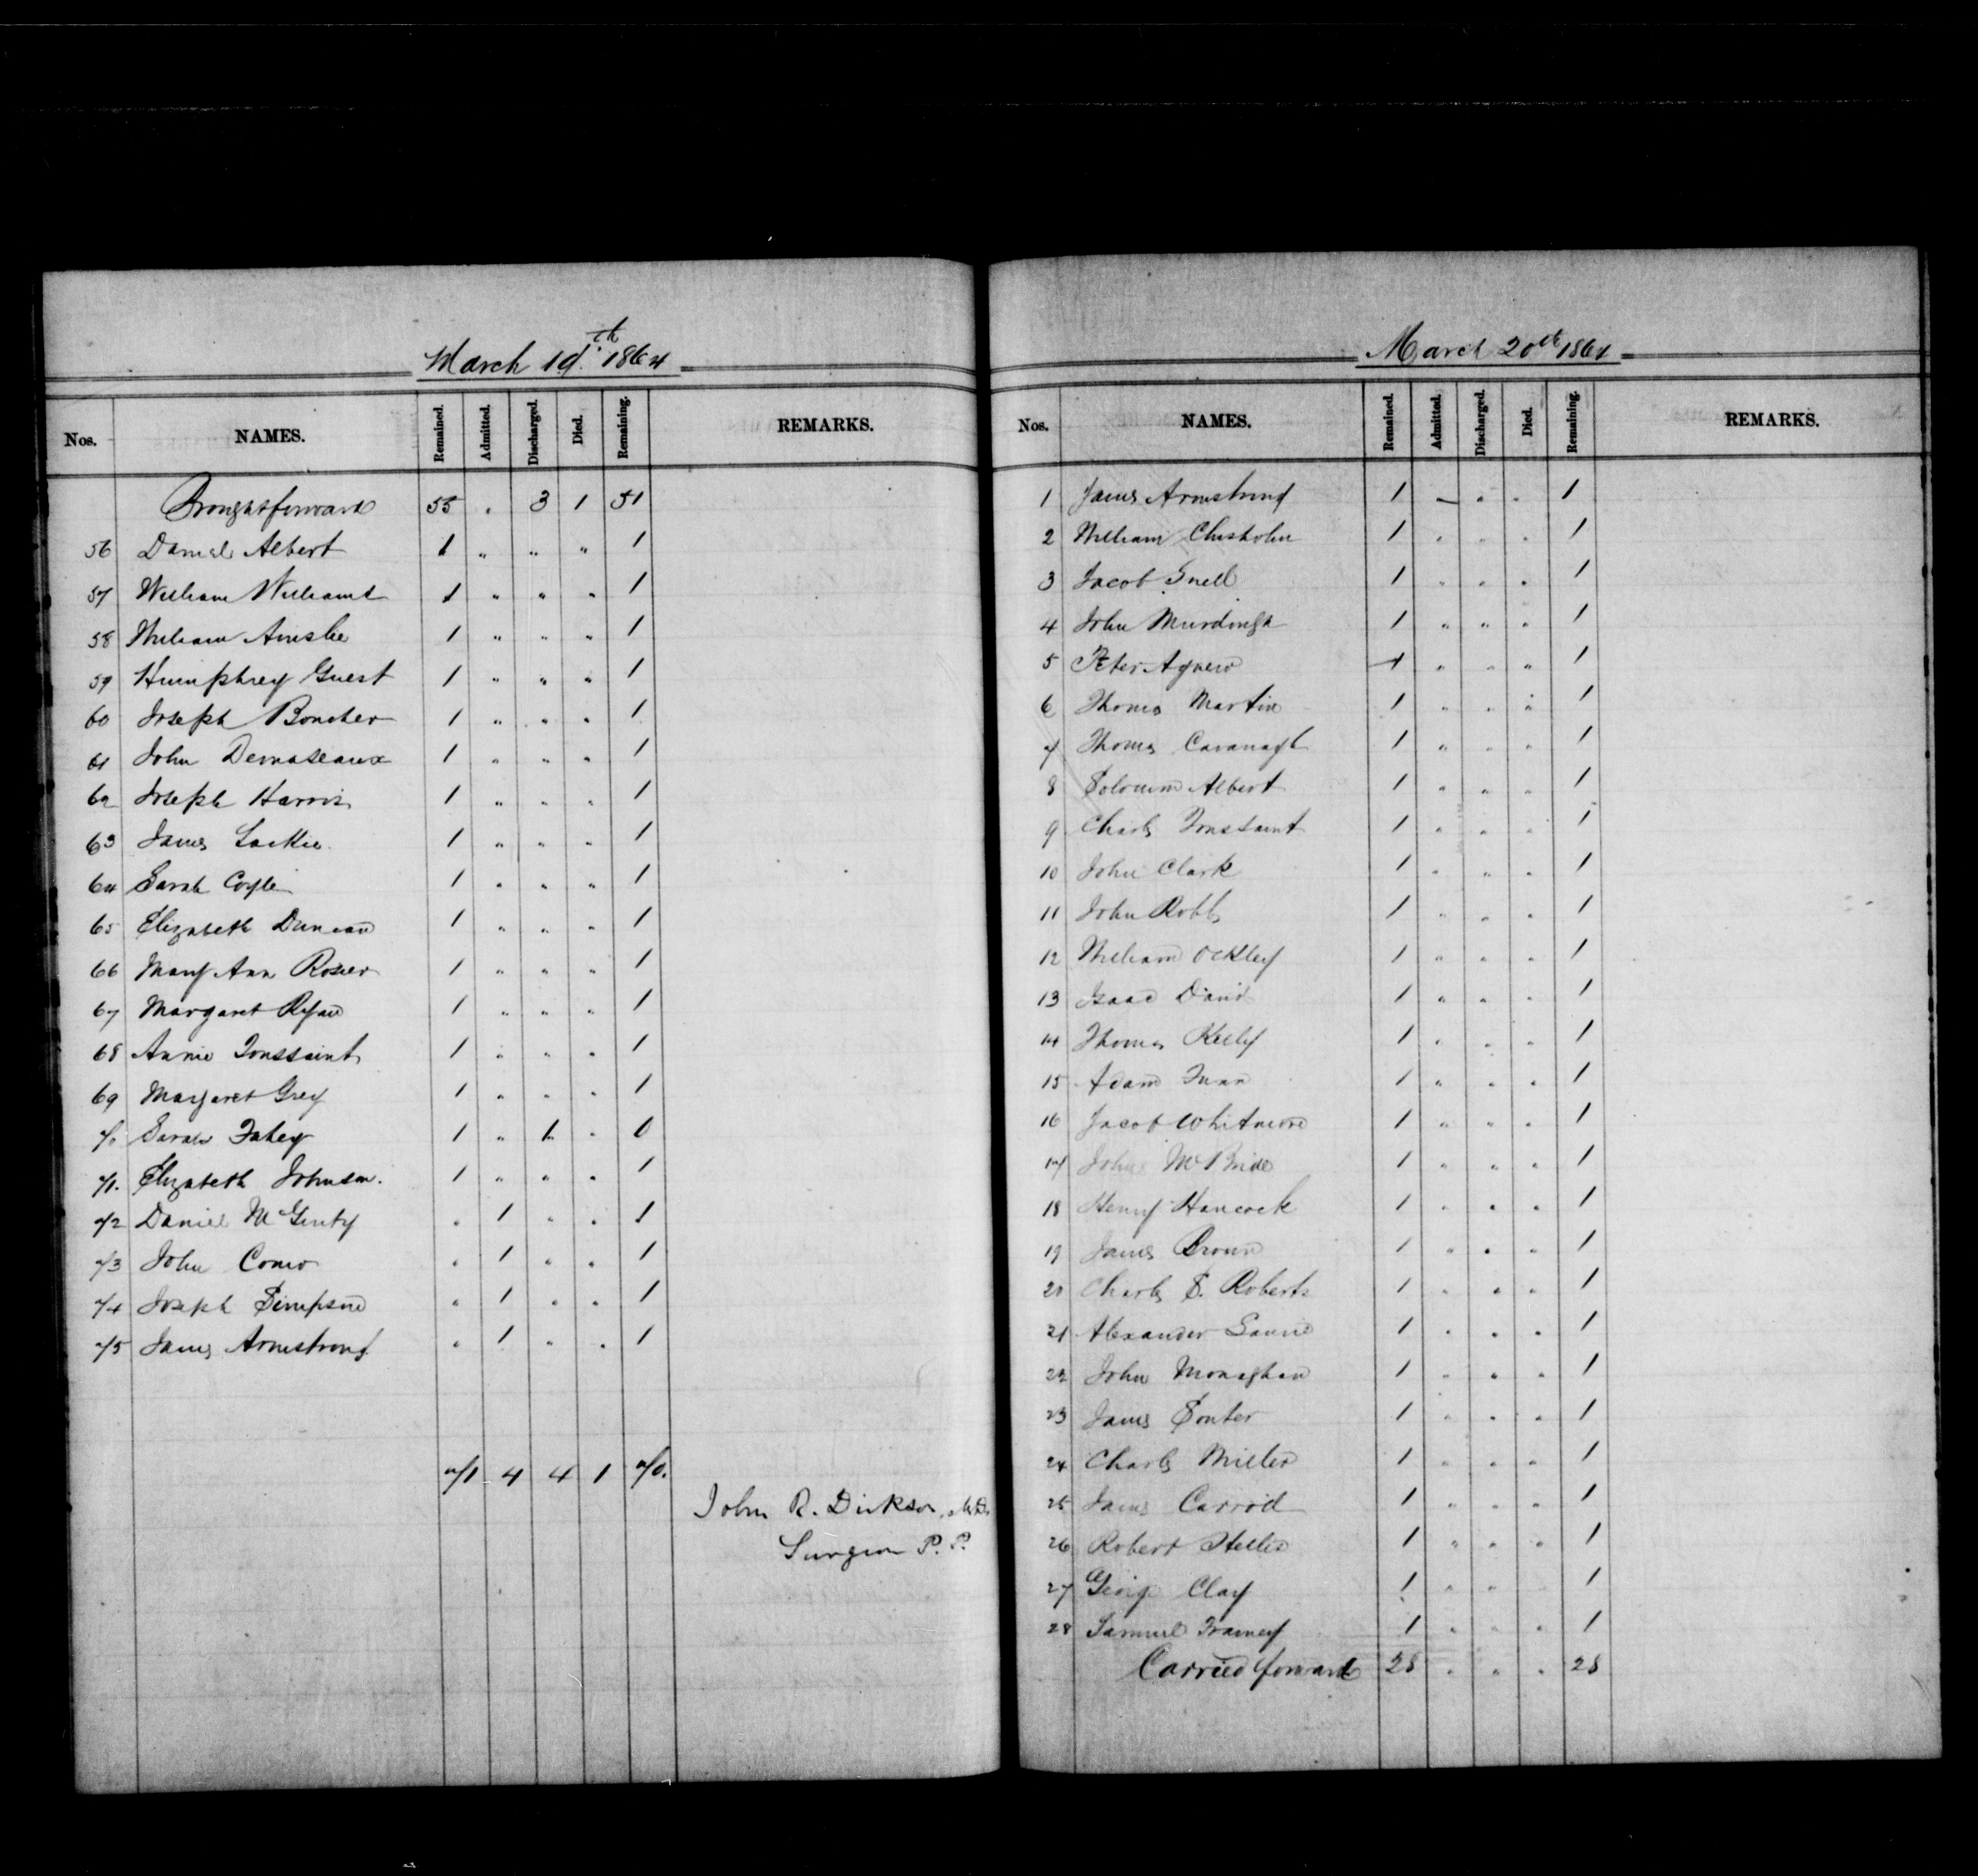 March 19th 1864
Nos. NAMES. Remained. Admitted. Discharged. Died. Remaining. REMARKS.
Brought forward 55 " 3 1 51
56 Daniel Albert 1 " " " 1
57 William Williams 1 " " " 1
58 William Ainslie 1 " " " 1
59 Humphrey Guest 1 " " " 1
60 Joseph Boucher 1 " " " 1
61 John 1 " " " 1
62 Joseph Harris 1 " " " 1
63 James Lackie 1 " " " 1
64 Sarah Coyle 1 " " " 1
65 Elizabeth Duncan 1 " " " 1
66 Mary Ann Rosier 1 " " " 1
67 Margaret Ryan 1 " " " 1
68 Annie Toussaint 1 " " " 1
69 Margaret Grey 1 " " " 1
70 Sarah Fahey 1 " 1 " 0
71. Elizabeth Johnson. 1 " " " 1
72 Daniel McGinty " 1 " " 1
73 John Como " 1 " " 1
74 Joseph Simpson " 1 " " 1
75 James Armstrong " 1 " " 1
71 4 4 1 70.
John R. Dickson, M.D.
Surgeon P. P.
March 20th 1864
Nos. NAMES. Remained. Admitted. Discharged. Died. Remaining. REMARKS.
1 James Armstrong 1 " " " 1
2 William Chisholm 1 " " " 1
3 Jacob Snell 1 " " " 1
4 John Murdough 1 " " " 1
5 Peter Agnew 1 " " " 1
6 Thomas Martin 1 " " " 1
7 Thomas Cavanagh 1 " " " 1
8 Solomon Albert 1 " " " 1
9 Charles Toussaint 1 " " " 1
10 John Clark 1 " " " 1
11 John Robb 1 " " " 1
12 William Ockley 1 " " " 1
13 Isaac David 1 " " " 1
14 Thomas Kelly 1 " " " 1
15 Adam 1 " " " 1
16 Jacob Whitmore 1 " " " 1
17 John McBride 1 " " " 1
18 Henry Hancock 1 " " " 1
19 James Brown 1 " " " 1
20 Charles S. Roberts 1 " " " 1
21 Alexander 1 " " " 1
22 John Monaghan 1 " " " 1
23 James Souter 1 " " " 1
24 Charles Miller 1 " " " 1
25 James Carrod 1 " " " 1
26 Robert 1 " " " 1
27 George Clay 1 " " 1
28 Samuel Tramey 1 " " " 1
Carried forward 28 " " " 28